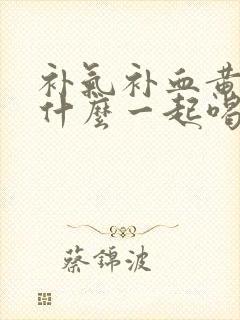 补氣补血黄
什麼一起喝
蔡錦波